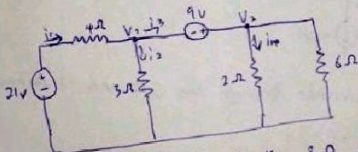 9V
i₁ 4Ω V₁ i₃ V₂
- +
i₂ i₄
21V + - 3Ω 2Ω 6Ω